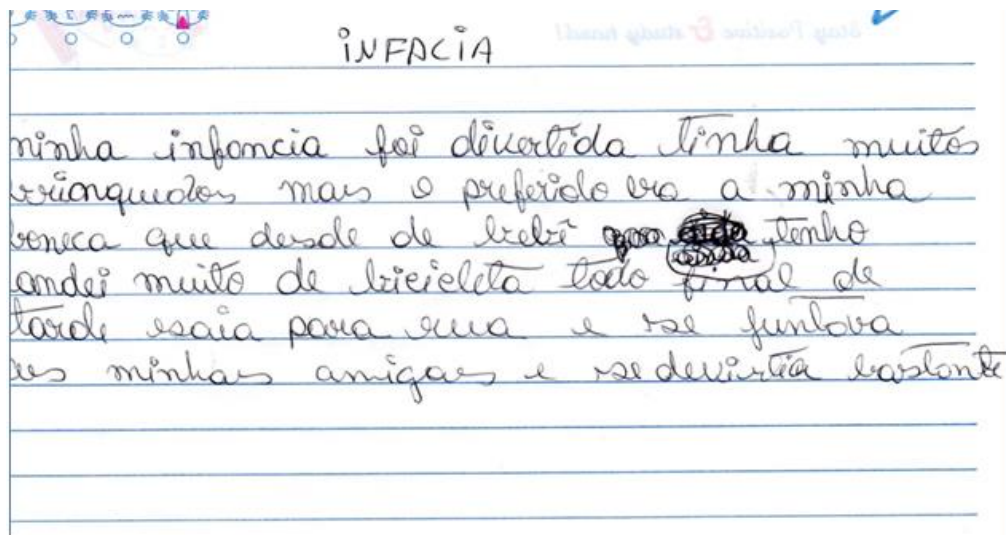 Stay Positive & study hard!
INFACIA
minha infancia foi divertida tinha muitos
brinquedos mas o preferido era a minha
boneca que desde de bebê tenho
andei muito de bicicleta todo final de
tarde saia para rua e se juntava
as minhas amigas e se devirtia bastante